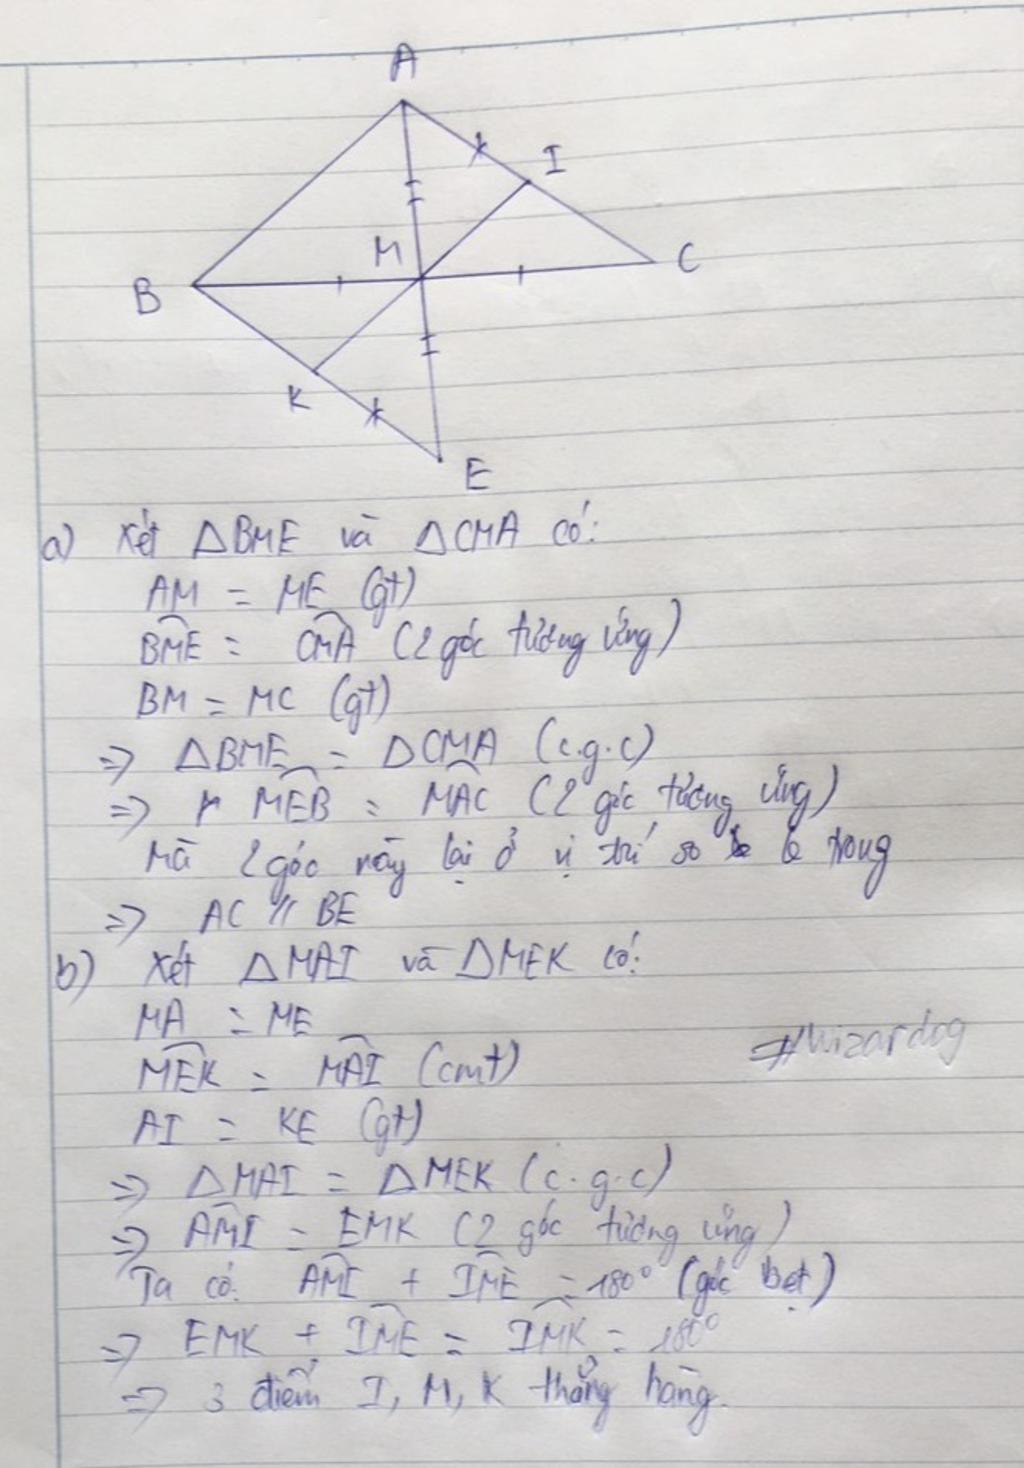 A
I
M
C
B
K
E
a) Xét △BME và △CMA có:
AM = ME (gt)
BME = CMA (2 góc tương ứng)
BM = MC (gt)
=> △BME = △CMA (c.g.c)
=> MEB = MAC (2 góc tương ứng)
Mà 2 góc này lại ở vị trí so le trong
=> AC // BE
b) Xét △MAI và △MEK có:
MA = ME
MEK = MAI (cmt)
#Wizardog
AI = KE (gt)
=> △MAI = △MEK (c.g.c)
=> AMI = EMK (2 góc tương ứng)
Ta có: AMI + IME = 180° (góc bẹt)
=> EMK + IME = IMK = 180°
=> 3 điểm I, M, K thẳng hàng.